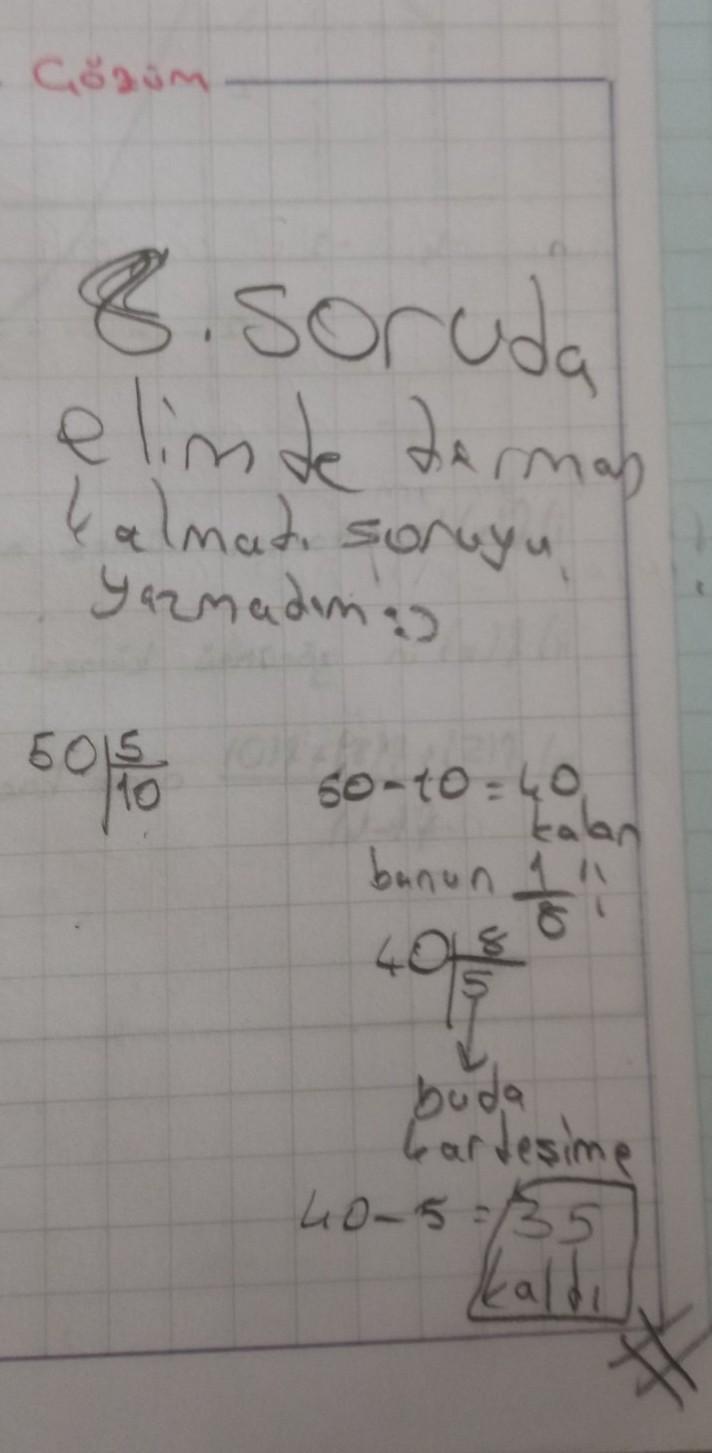 Çözüm
8. Soruda
elimde derman
kalmadı soruyu
yazmadım :)
50 | 5
10
50-10=40
kalan
bunun 1/8 i
40 | 8
5
↓
buda
kardesime
40-5=35
kaldı